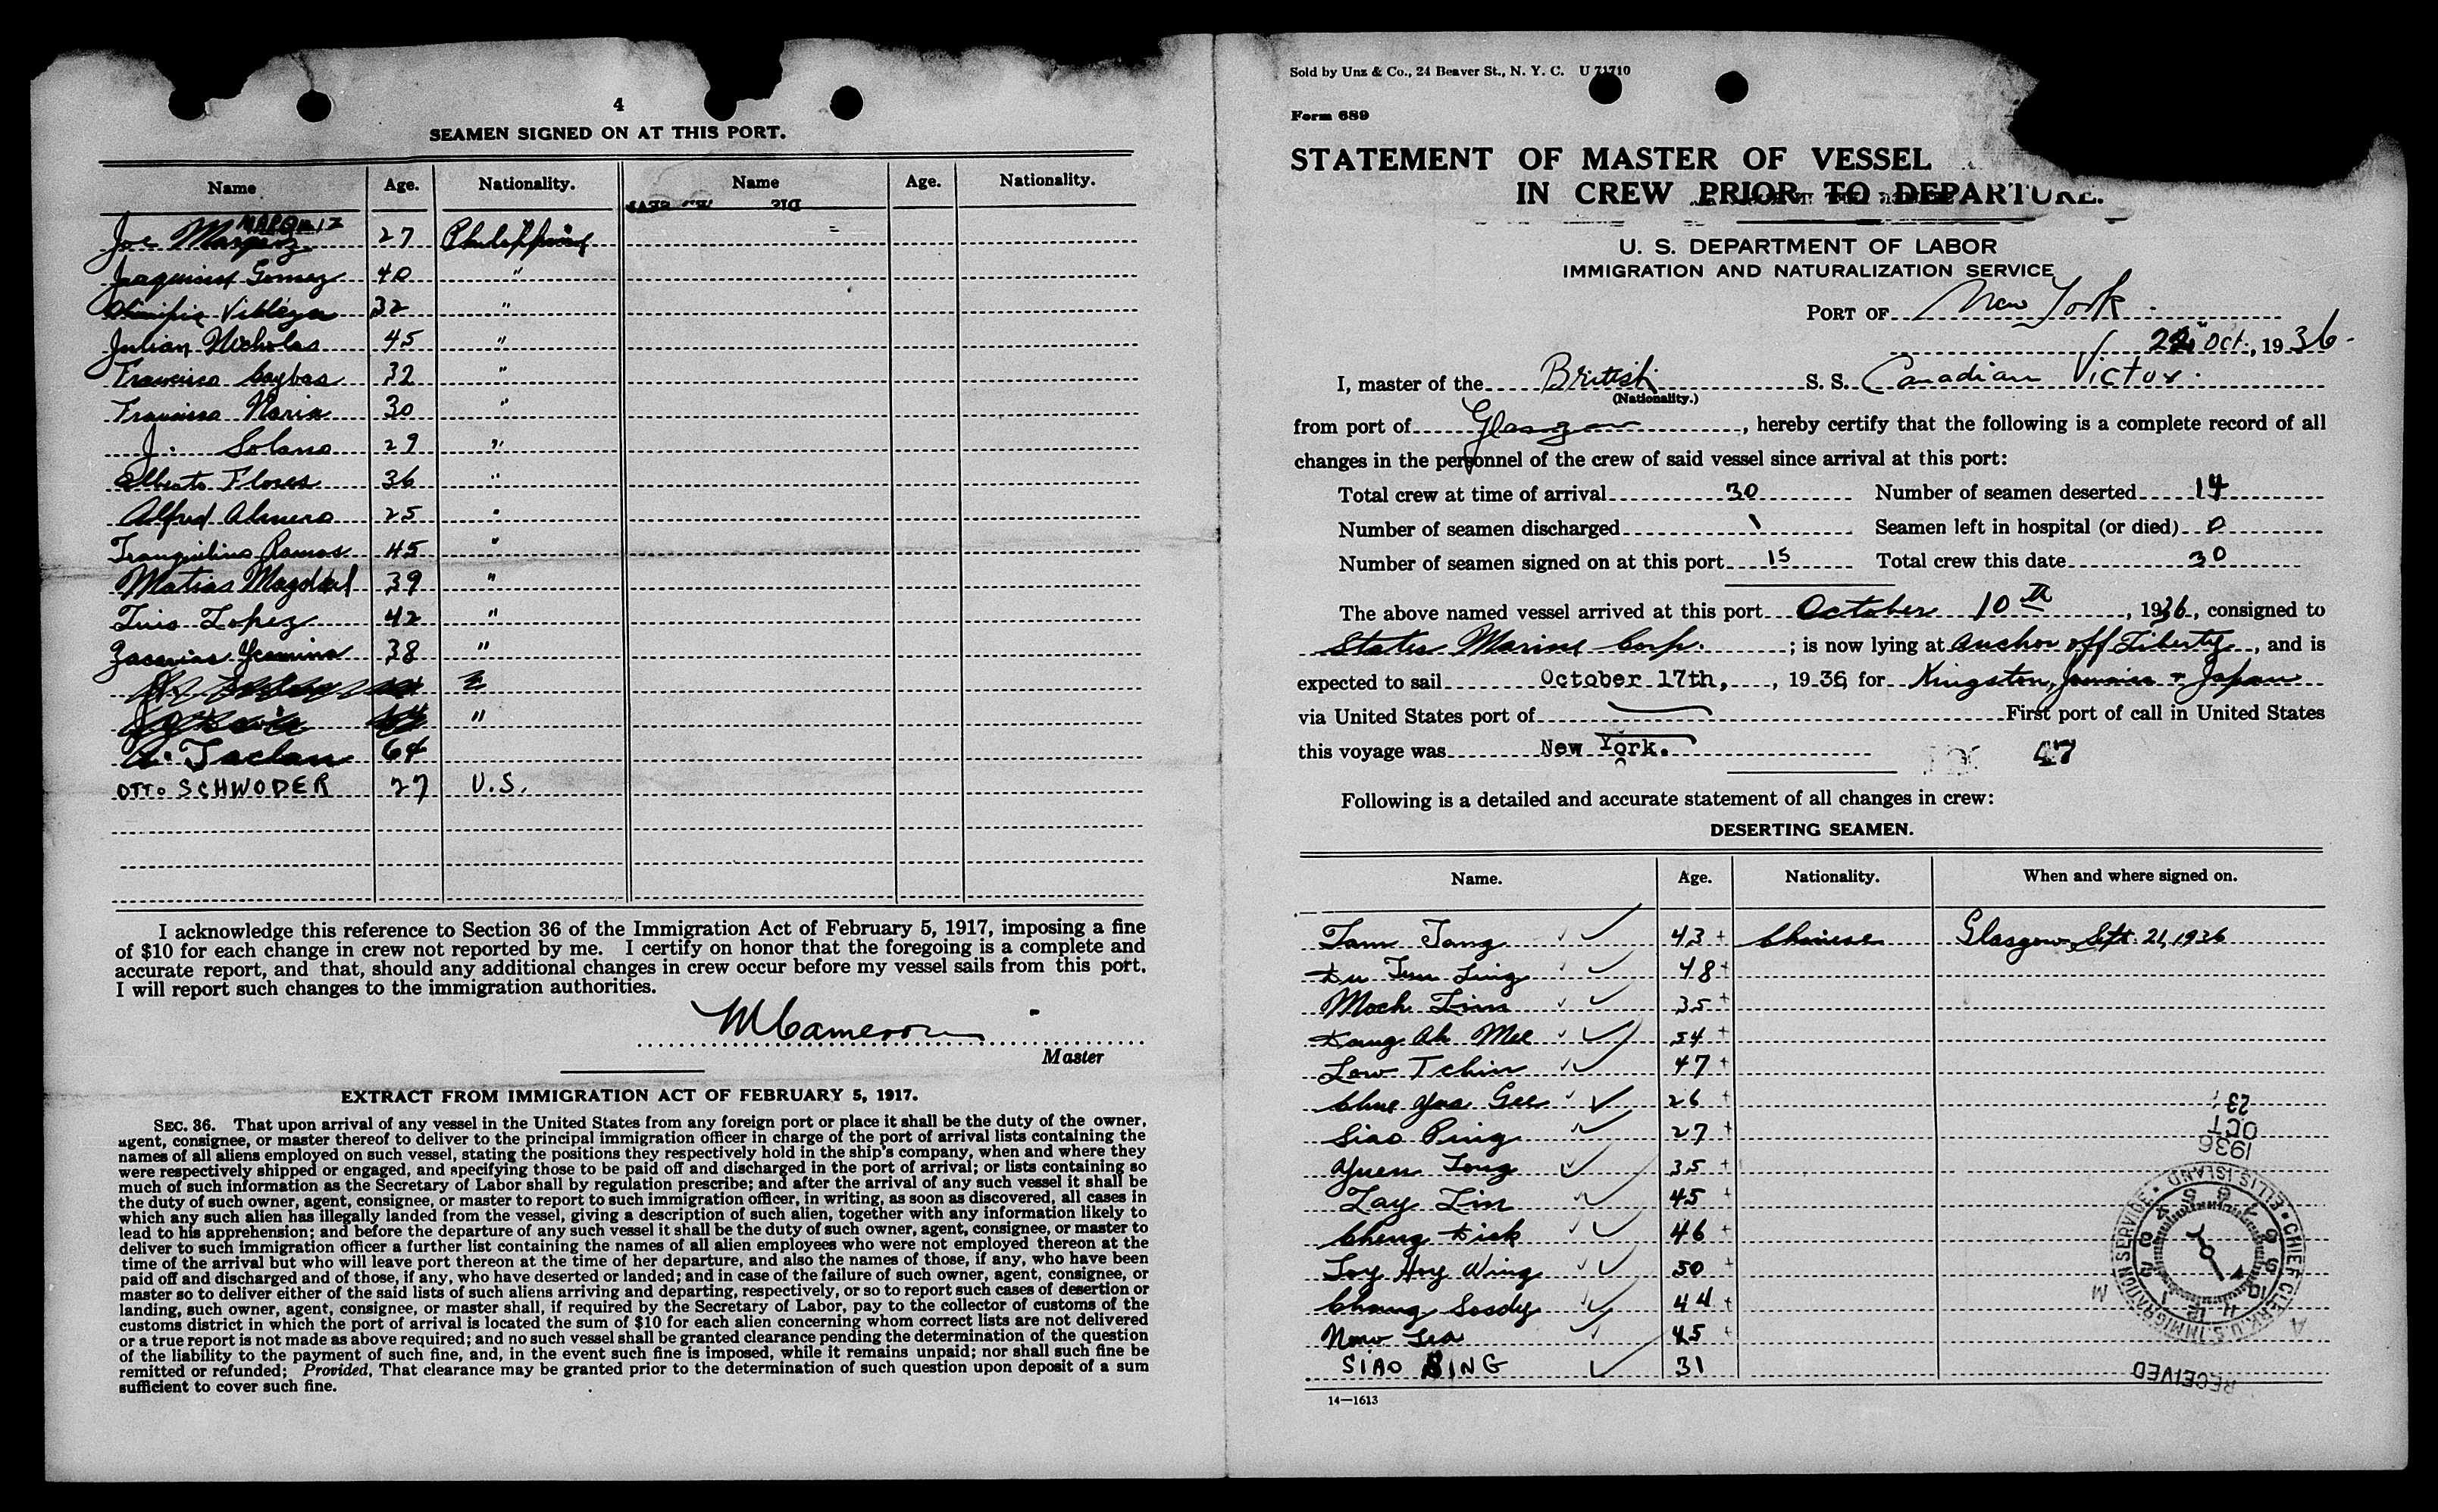 4
SEAMEN SIGNED ON AT THIS PORT.
Name Age. Nationality. Name Age. Nationality.
MARQUIZ
Joe Marquiz 27 Philippine
Joaquin Gomez 40 "
32 "
Julian Nicholas 45 "
Francisco 32 "
Francisco Maria 30 "
J. Solano 29 "
Alberto Flores 36 "
Alfred 25 "
Tranquilino Ramos 45 "
Matias 39 "
Luis Lopez 42 "
Zacarias 38 "
"
A. Taclan 64
OTTO SCHWODER 27 U.S.
I acknowledge this reference to Section 36 of the Immigration Act of February 5, 1917, imposing a fine
of $10 for each change in crew not reported by me. I certify on honor that the foregoing is a complete and
accurate report, and that, should any additional changes in crew occur before my vessel sails from this port,
I will report such changes to the immigration authorities.
M Cameron
Master
EXTRACT FROM IMMIGRATION ACT OF FEBRUARY 5, 1917.
SEC. 36. That upon arrival of any vessel in the United States from any foreign port or place it shall be the duty of the owner,
agent, consignee, or master thereof to deliver to the principal immigration officer in charge of the port of arrival lists containing the
names of all aliens employed on such vessel, stating the positions they respectively hold in the ship's company, when and where they
were respectively shipped or engaged, and specifying those to be paid off and discharged in the port of arrival; or lists containing so
much of such information as the Secretary of Labor shall by regulation prescribe; and after the arrival of any such vessel it shall be
the duty of such owner, agent, consignee, or master to report to such immigration officer, in writing, as soon as discovered, all cases in
which any such alien has illegally landed from the vessel, giving a description of such alien, together with any information likely to
lead to his apprehension; and before the departure of any such vessel it shall be the duty of such owner, agent, consignee, or master to
deliver to such immigration officer a further list containing the names of all alien employees who were not employed thereon at the
time of the arrival but who will leave port thereon at the time of her departure, and also the names of those, if any, who have been
paid off and discharged and of those, if any, who have deserted or landed; and in case of the failure of such owner, agent, consignee, or
master so to deliver either of the said lists of such aliens arriving and departing, respectively, or so to report such cases of desertion or
landing, such owner, agent, consignee, or master shall, if required by the Secretary of Labor, pay to the collector of customs of the
customs district in which the port of arrival is located the sum of $10 for each alien concerning whom correct lists are not delivered
or a true report is not made as above required; and no such vessel shall be granted clearance pending the determination of the question
of the liability to the payment of such fine, and, in the event such fine is imposed, while it remains unpaid; nor shall such fine be
remitted or refunded; Provided, That clearance may be granted prior to the determination of such question upon deposit of a sum
sufficient to cover such fine.
Sold by Unz & Co., 24 Beaver St., N. Y. C. U 71710
Form 689
STATEMENT OF MASTER OF VESSEL
IN CREW PRIOR TO DEPARTURE.
U. S. DEPARTMENT OF LABOR
IMMIGRATION AND NATURALIZATION SERVICE
PORT OF New York
22 Oct., 1936
I, master of the British S. S. Canadian Victor.
(Nationality.)
from port of Glasgow, hereby certify that the following is a complete record of all
changes in the personnel of the crew of said vessel since arrival at this port:
Total crew at time of arrival 30 Number of seamen deserted 14
Number of seamen discharged 1 Seamen left in hospital (or died) 0
Number of seamen signed on at this port 15 Total crew this date 30
The above named vessel arrived at this port October 10th, 1936, consigned to
States Marine Corp.; is now lying at anchor off Liberty, and is
expected to sail October 17th, 1936 for Kingston, Jamaica & Japan
via United States port of First port of call in United States
this voyage was New York. 47
Following is a detailed and accurate statement of all changes in crew:
DESERTING SEAMEN.
Name. Age. Nationality. When and where signed on.
Tam Tang 43 + Chinese Glasgow Sept. 21, 1936
Ling 48 +
Moch Linn 35 +
Ah Mee 54 +
Low Tchin 47 +
Gee 26 +
Siao Ping 27 +
Yuen Tong 35 +
Zay Lin 45 +
Cheng 46 +
Loy Hoy Wing 50 +
Chang Sosdy 44 +
45 +
SIAO BING 31
14—1613
RECEIVED
1936 OCT 23
CHIEF CLERK U. S. IMMIGRATION SERVICE • ELLIS ISLAND •
A M